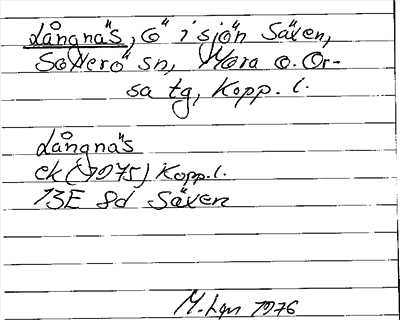 Långnäs, ö i sjön Säxen,
Sollerö sn, Mora o. Or-
sa tg, Kopp. l.
Långnäs
ek (1975) Kopp.l.
13E 8d Säxen
M. Lgn 1976